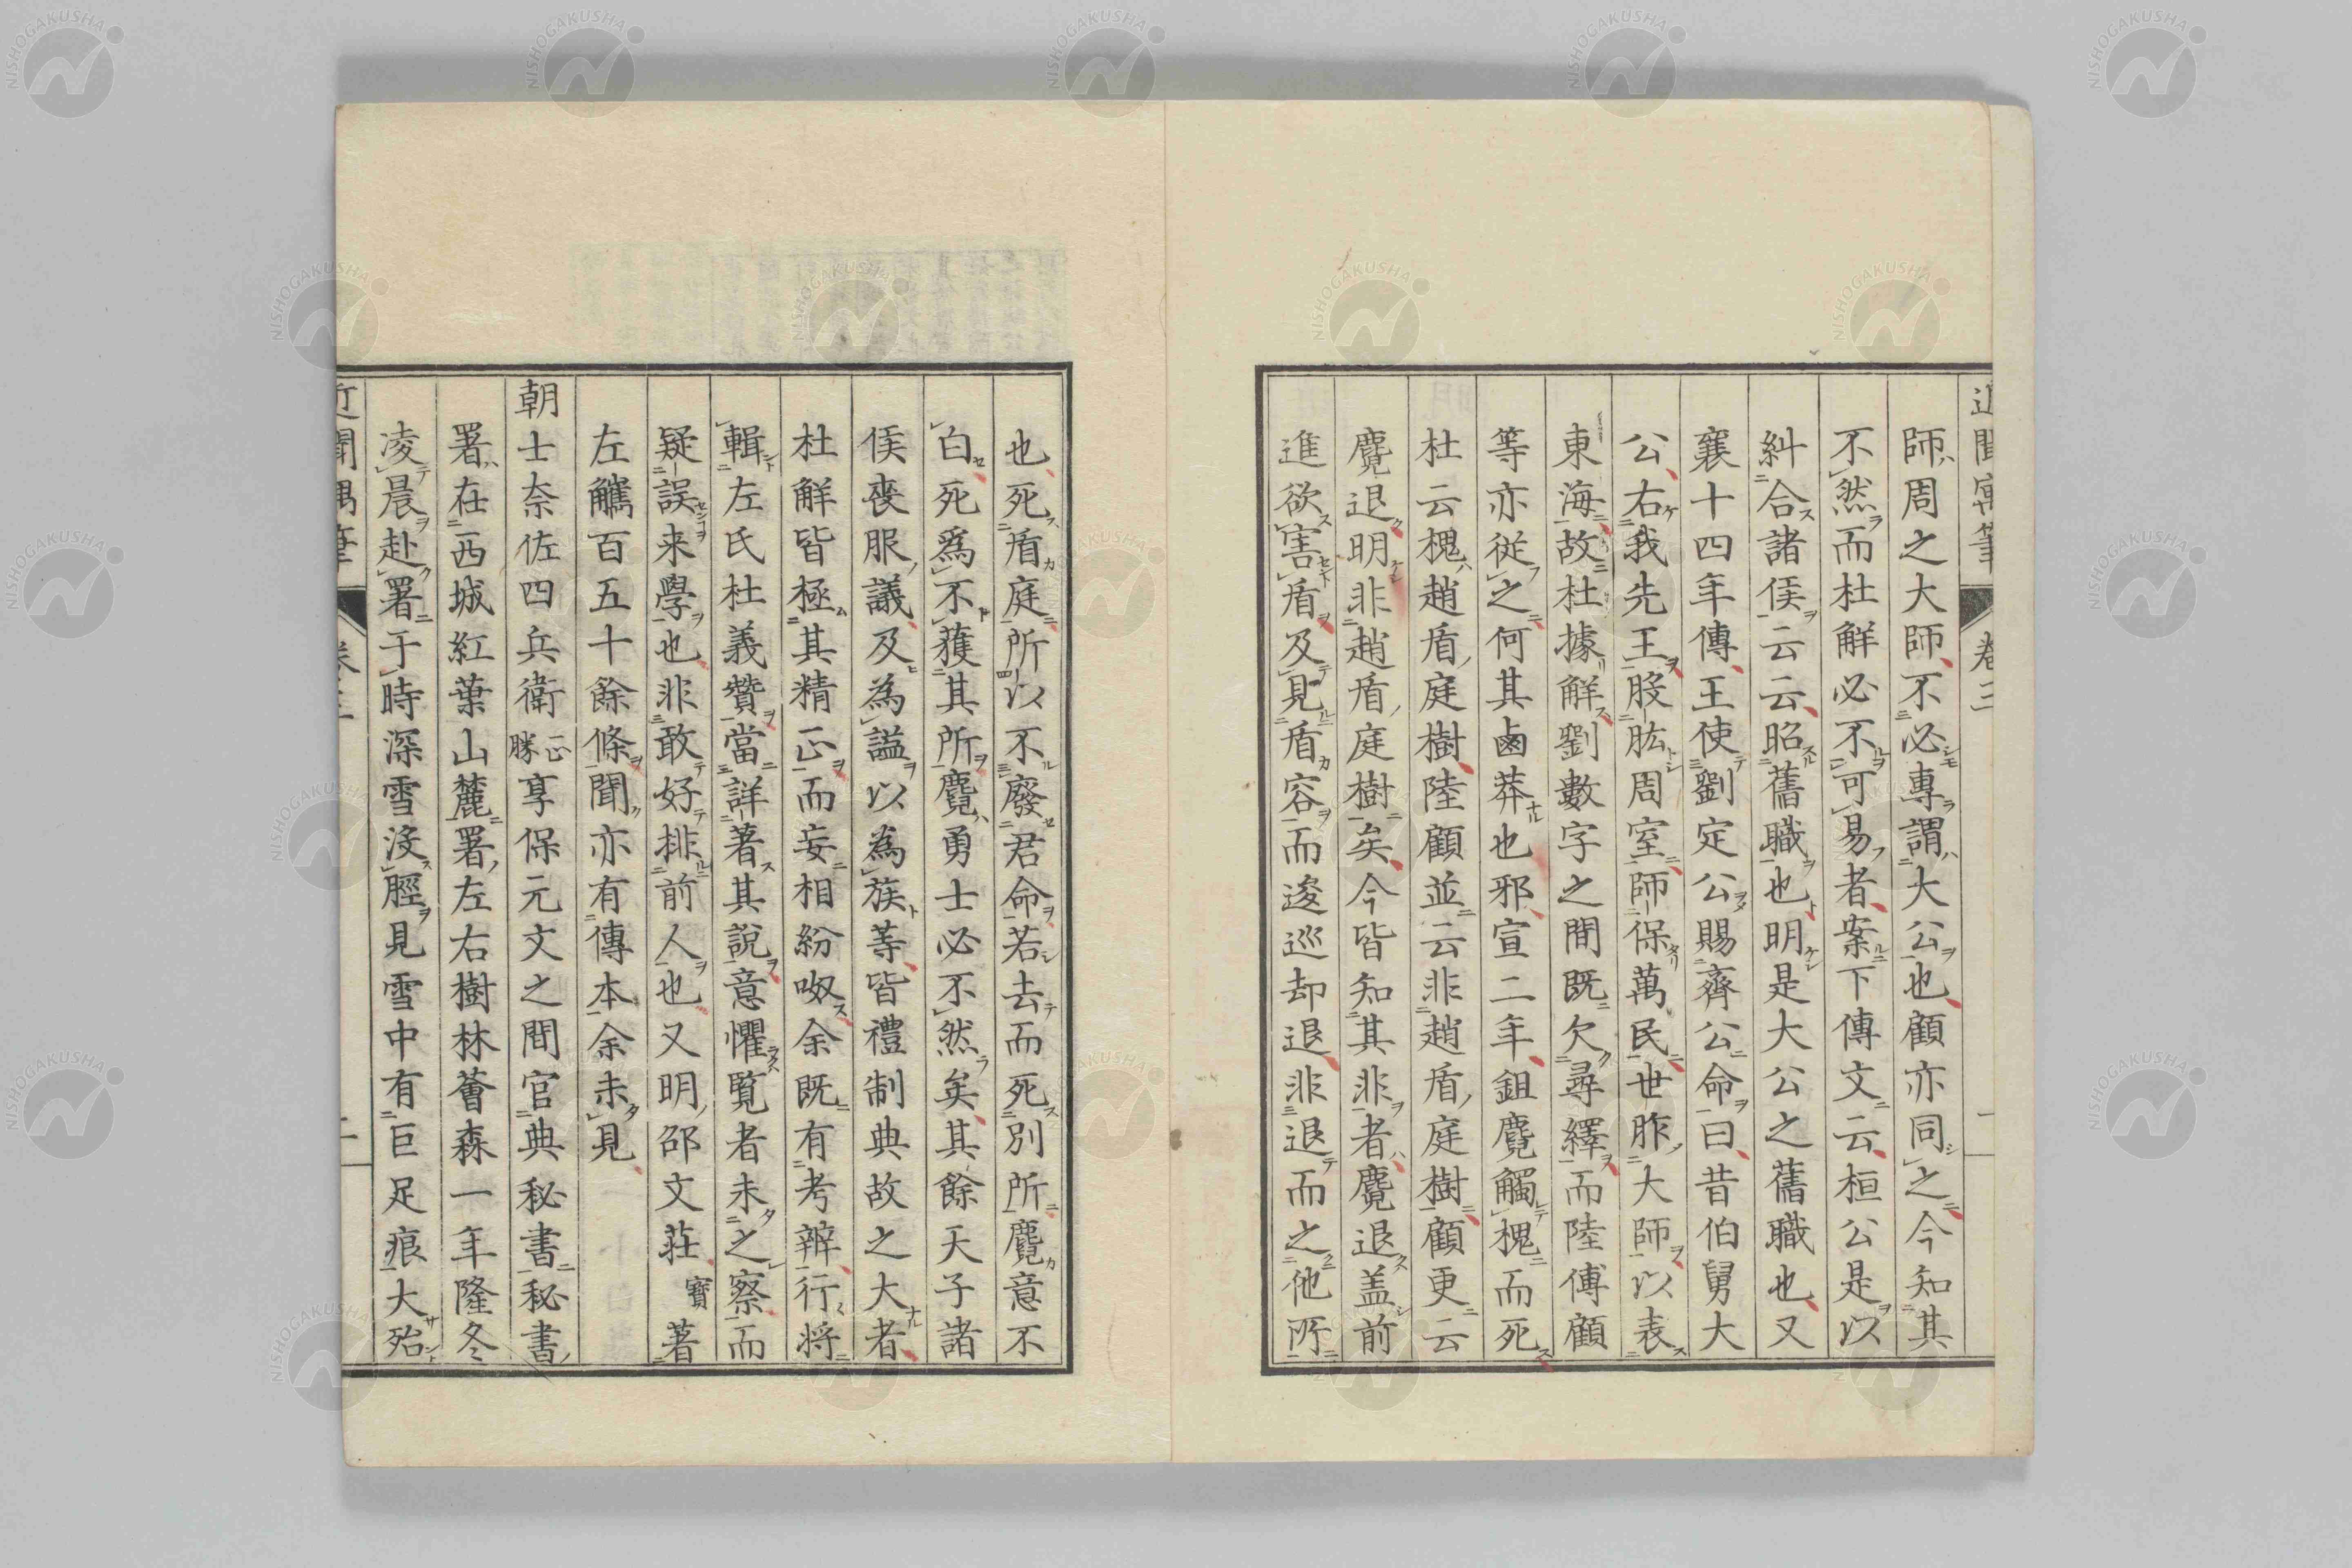 師周之大師不必專謂大公也顧亦同之今知其
不然而杜解必不可易者案下傳文云桓公是以
糾合諸侯云云昭舊職也明是大公之舊職也又
襄十四年傳王使劉定公賜齊公命曰昔伯舅大
公右我先王股肱周室師保萬民世胙大師以表
東海故杜據解劉數字之間既欠尋繹而陸傅顧
等亦從之何其鹵莽也邪宣二年鉏麑觸槐而死
杜云槐趙盾庭樹陸顧並云非趙盾庭樹顧更云
麑退明非趙盾庭樹矣今皆知其非者麑退盖前
進欲害盾及見盾容而逡巡却退非退而之他所
也死盾庭所以不廢君命若去而死別所麑意不
白死爲不獲其所麑勇士必不然矣其餘天子諸
侯喪服議及為謚以為族等皆禮制典故之大者
杜解皆極其精正而妄相紛呶余既有考辨行将
輯左氏杜義贊當詳著其說意懼覧者未之察而
疑誤来學也非敢好排前人也又明邵文莊寶著
左觿百五十餘條聞亦有傳本余未見
朝士奈佐四兵衛正勝享保元文之間官典秘書秘書
署在西城紅葉山麓署左右樹林薈森一年隆冬
凌晨赴署于時深雪没脛見雪中有巨足痕大殆
近聞寓筆 卷三